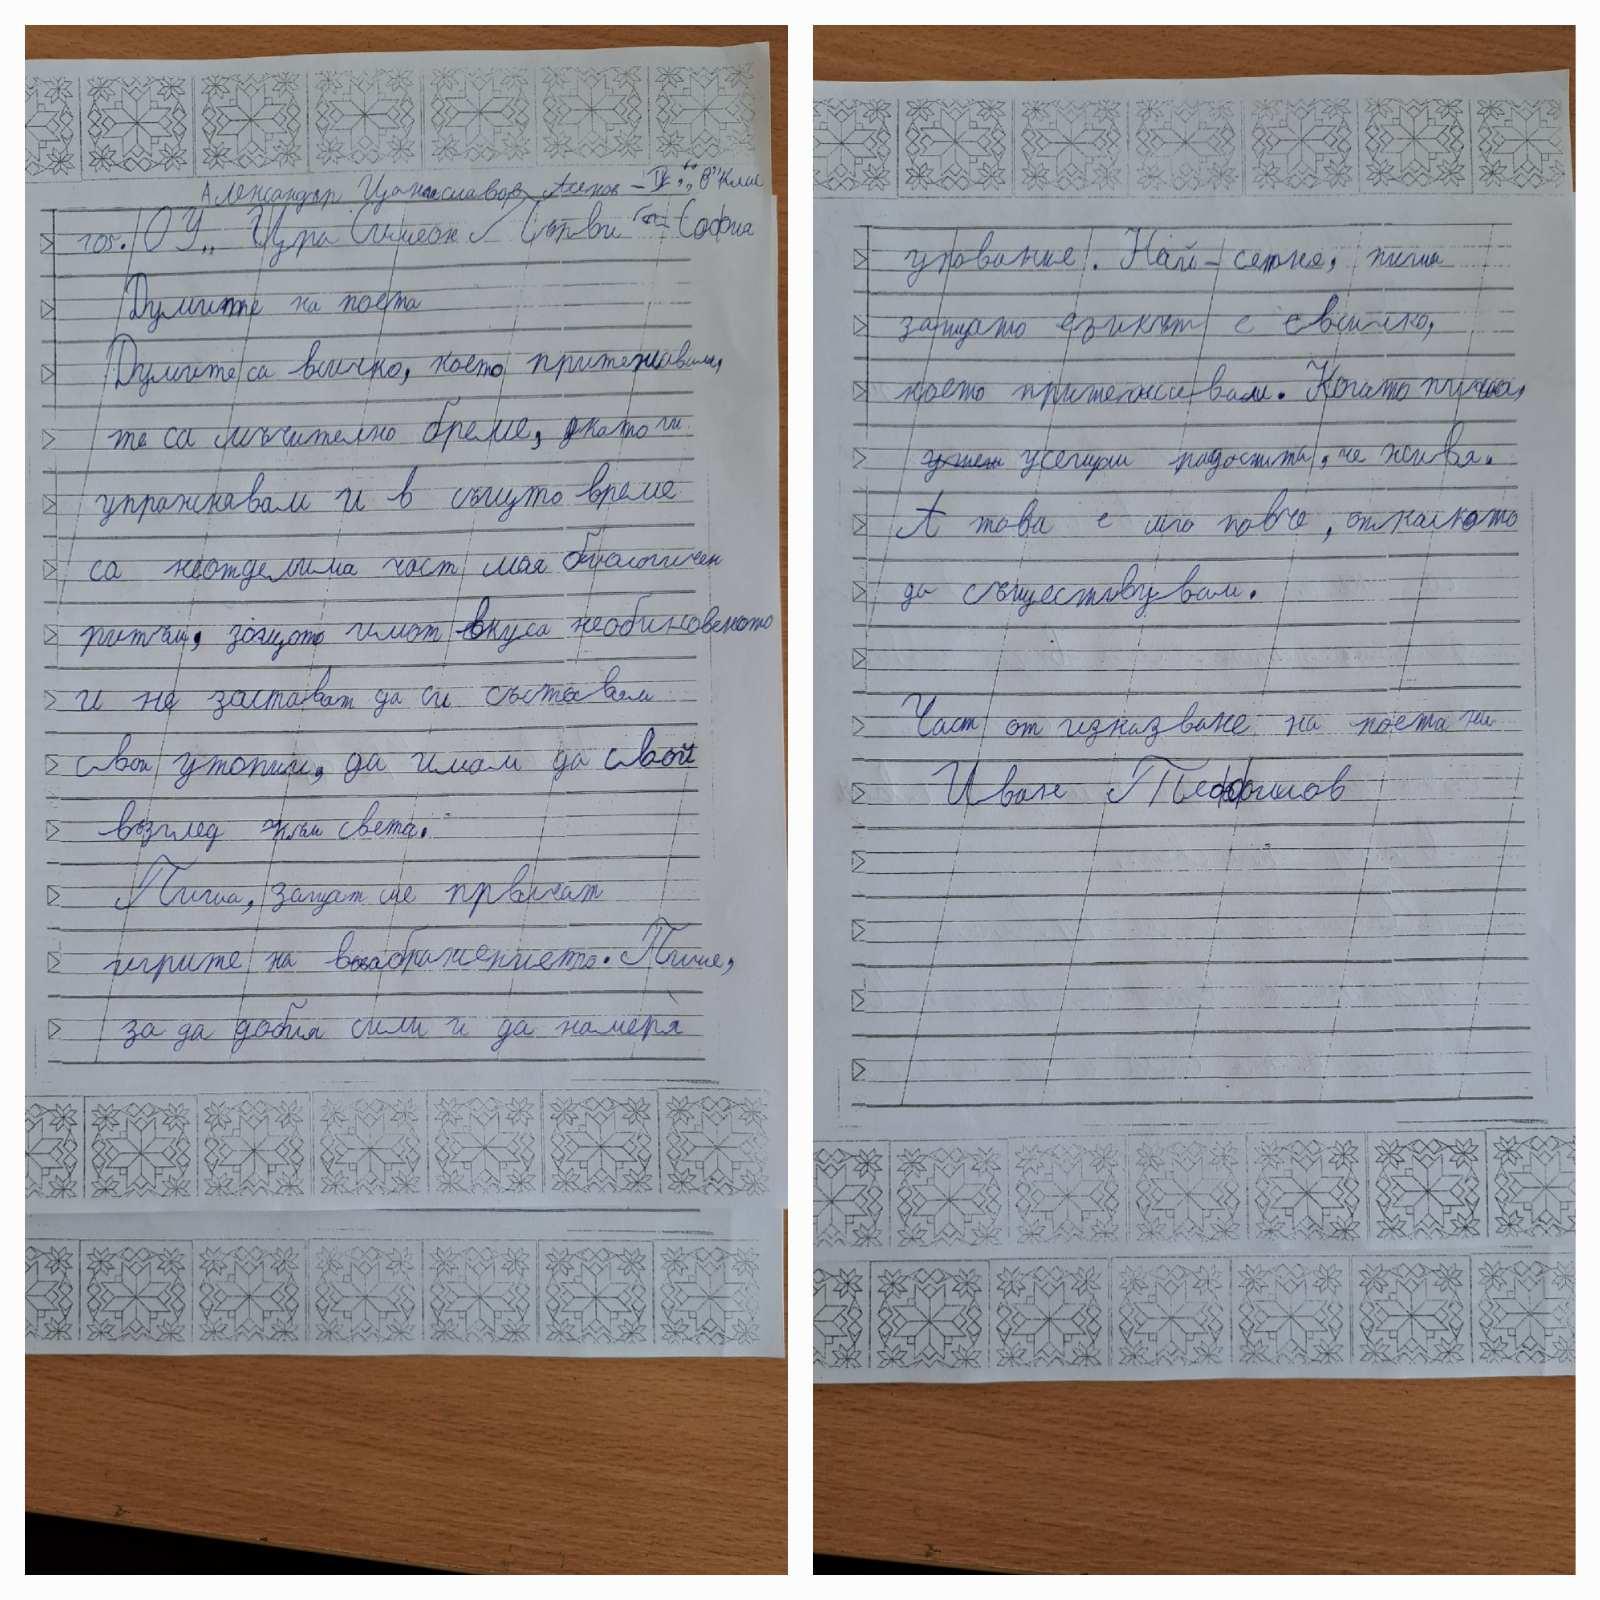 Александър Цаниславов Асенов – IV „в" клас
105. ОУ „Цра Симеон Първи" – София
Думите на поета
Думите са всичко, което притежавам,
те са мъчително бреме, докато ги
упражнявам и в същото време
са неотделима част мая биологичен
ритъм, защото имат вкуса необиновеното
и не застават да си съставям
свои утопии, да имам да свой
възглед към света.
Пиша, защот ме првличат
игрите на въображението. Пише,
за да добия сили и да намеря
упование. Най-сетне, пиша
защато езикът е свсичко,
което притежавам. Когато пиша,
усещам радостта, че живея.
А това е мно повче, отколкото
да съществувам.
Част от изказване на поета ни
Иван Теофилов